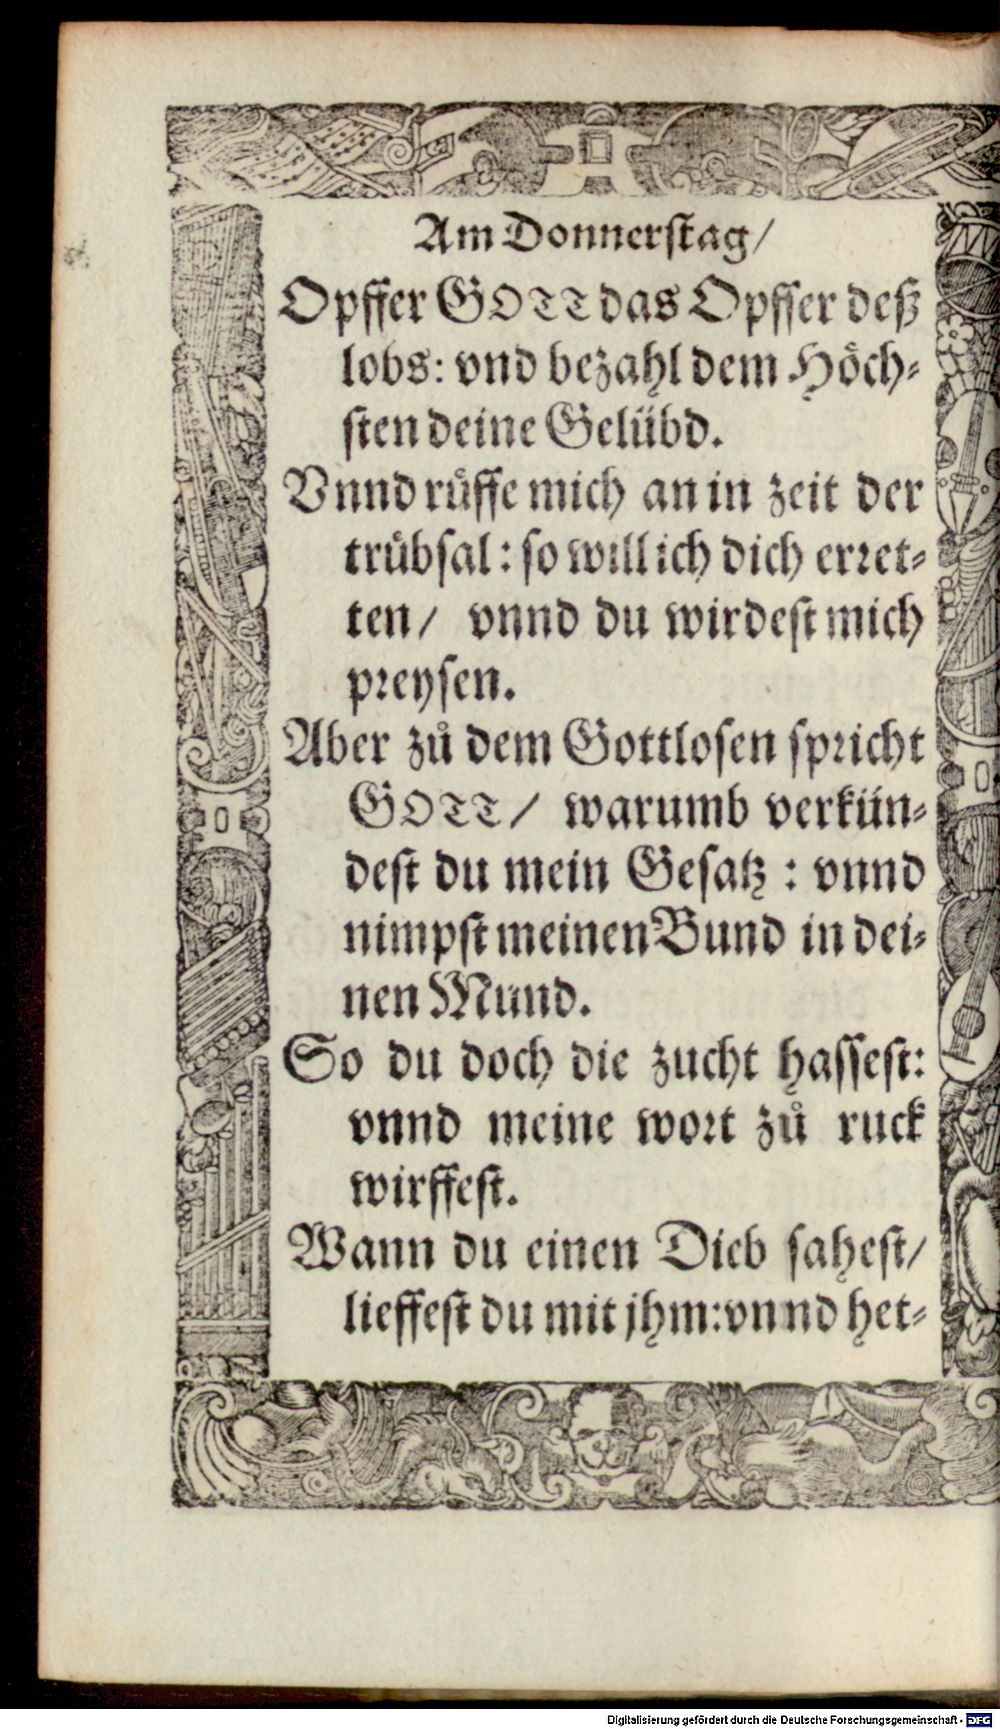 Am Donnerstag/
Opffer GOTT das Opffer deß
lobs: vnd bezahl dem Höch⸗
sten deine Gelübd.
Vnnd rüffe mich an in zeit der
trübsal: so will ich dich erret⸗
ten/ vnnd du wirdest mich
preysen.
Aber zů dem Gottlosen spricht
GOTT/ warumb verkün⸗
dest du mein Gesatz : vnnd
nimpst meinen Bund in dei⸗
nen Mund.
So du doch die zucht hassest:
vnnd meine wort zů ruck
wirffest.
Wann du einen Dieb sahest/
lieffest du mit jhm: vnnd het⸗
Digitalisierung gefördert durch die Deutsche Forschungsgemeinschaft - DFG